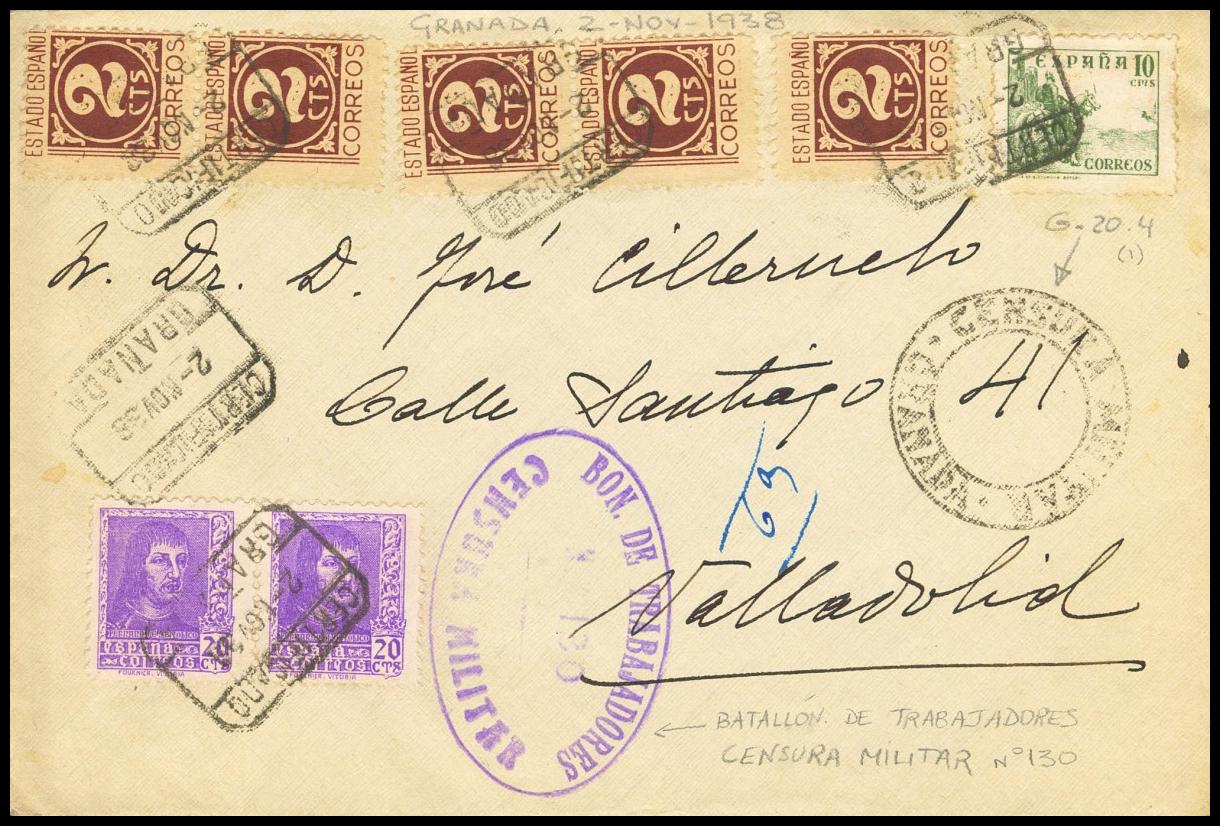 GRANADA. 2-NOV-1938
ESTADO ESPAÑOL 2 CTS CORREOS
ESTADO ESPAÑOL 2 CTS CORREOS
ESTADO ESPAÑOL 2 CTS CORREOS
ESTADO ESPAÑOL 2 CTS CORREOS
ESTADO ESPAÑOL 2 CTS CORREOS
ESPAÑA 10
CTS
CORREOS
CERTIFICADO
CERTIFICADO
CERTIFICADO
G-20.4
(1)
Dr. D. José Cilleruelo
Calle Santiago 41
Valladolid
CENSURA MILITAR · GRANADA ·
CERTIFICADO
2-NOV 38
GRANADA
63
BON. DE TRABAJADORES
130
CENSURA MILITAR
FERNANDO EL CATOLICO
ESPAÑA
CORREOS
20
CTS
FOURNIER. VITORIA
FERNANDO EL CATOLICO
ESPAÑA
CORREOS
20
CTS
FOURNIER. VITORIA
CERTIFICADO
GRANADA
BATALLÓN. DE TRABAJADORES
CENSURA MILITAR Nº130